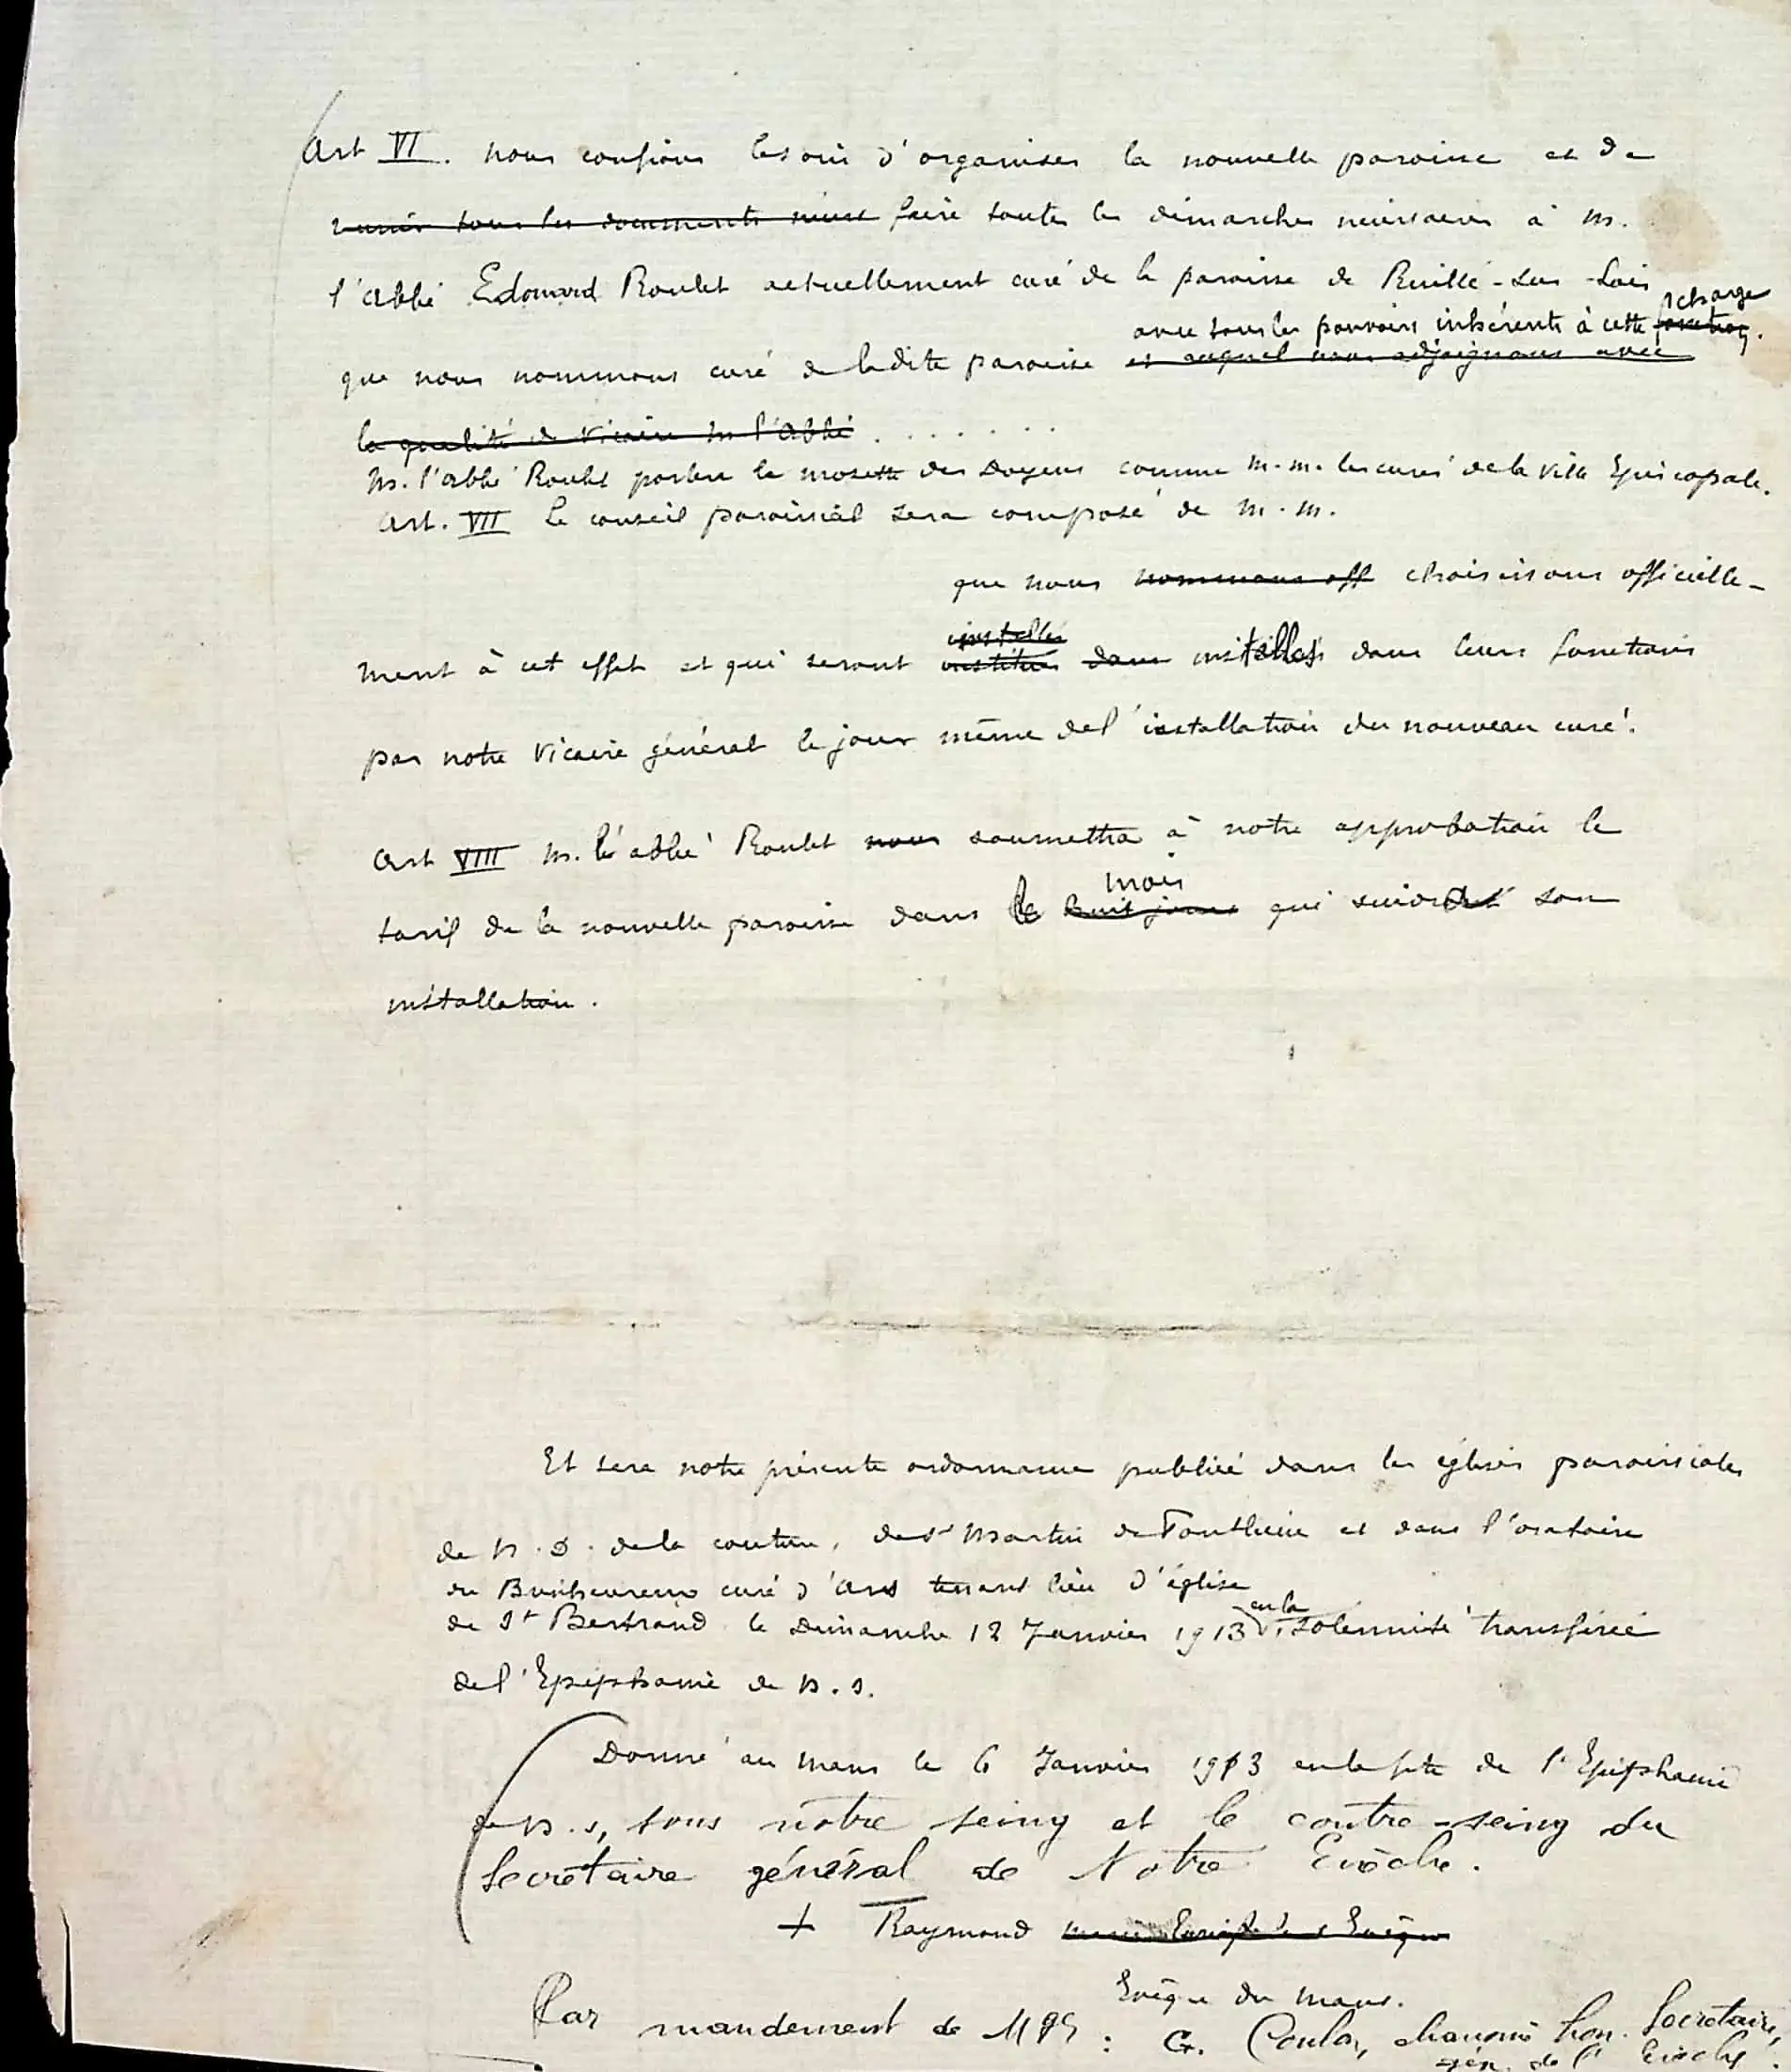 Art VI. Nous confions le soin d'organiser la nouvelle paroisse et de
réunir tous les documents faire toutes les démarches nécessaires à M.
l'Abbé Edouard Roulet actuellement curé de la paroisse de Ruillé-sur-Loir
charge
avec tous les pouvoirs inhérents à cette fonction.
que nous nommons curé de la dite paroisse et auquel nous adjoignons avec
la qualité de Vicaire M l'Abbé . . . . . . .
M. l'abbé Roulet portera la mosette des Doyens comme M.M. les curés de la Ville Episcopale.
Art. VII Le conseil paroissial sera composé de M.M.
que nous nommons off choisissons officielle-
installés
ment à cet effet et qui seront institués dans installés dans leurs fonctions
par notre Vicaire général le jour même de l'installation du nouveau curé.
Art VIII M. l'abbé Roulet nous soumettra à notre approbation le
mois
tarif de la nouvelle paroisse dans le huit jours qui suivra son
installation.
Et sera notre présente ordonnance publiée dans les églises paroissiales
de N.D. de la couture, de St Martin de Pontlieue et dans l'oratoire
du Bienheureux curé d'Ars tenant lieu d'église
en la
de St Bertrand le Dimanche 12 Janvier 1913 solennité transférée
de l'Epiphanie de N.S.
Donné au Mans le 6 Janvier 1913 en la fête de l'Epiphanie
de N.S, sous notre seing et le contre-seing du
Secrétaire général de Notre Evêché.
+ Raymond Evêque
Evêque du Mans.
Par mandement de Mgr : G. Coulon, chanoine hon. Secrétaire,
gén. de l'Evêché